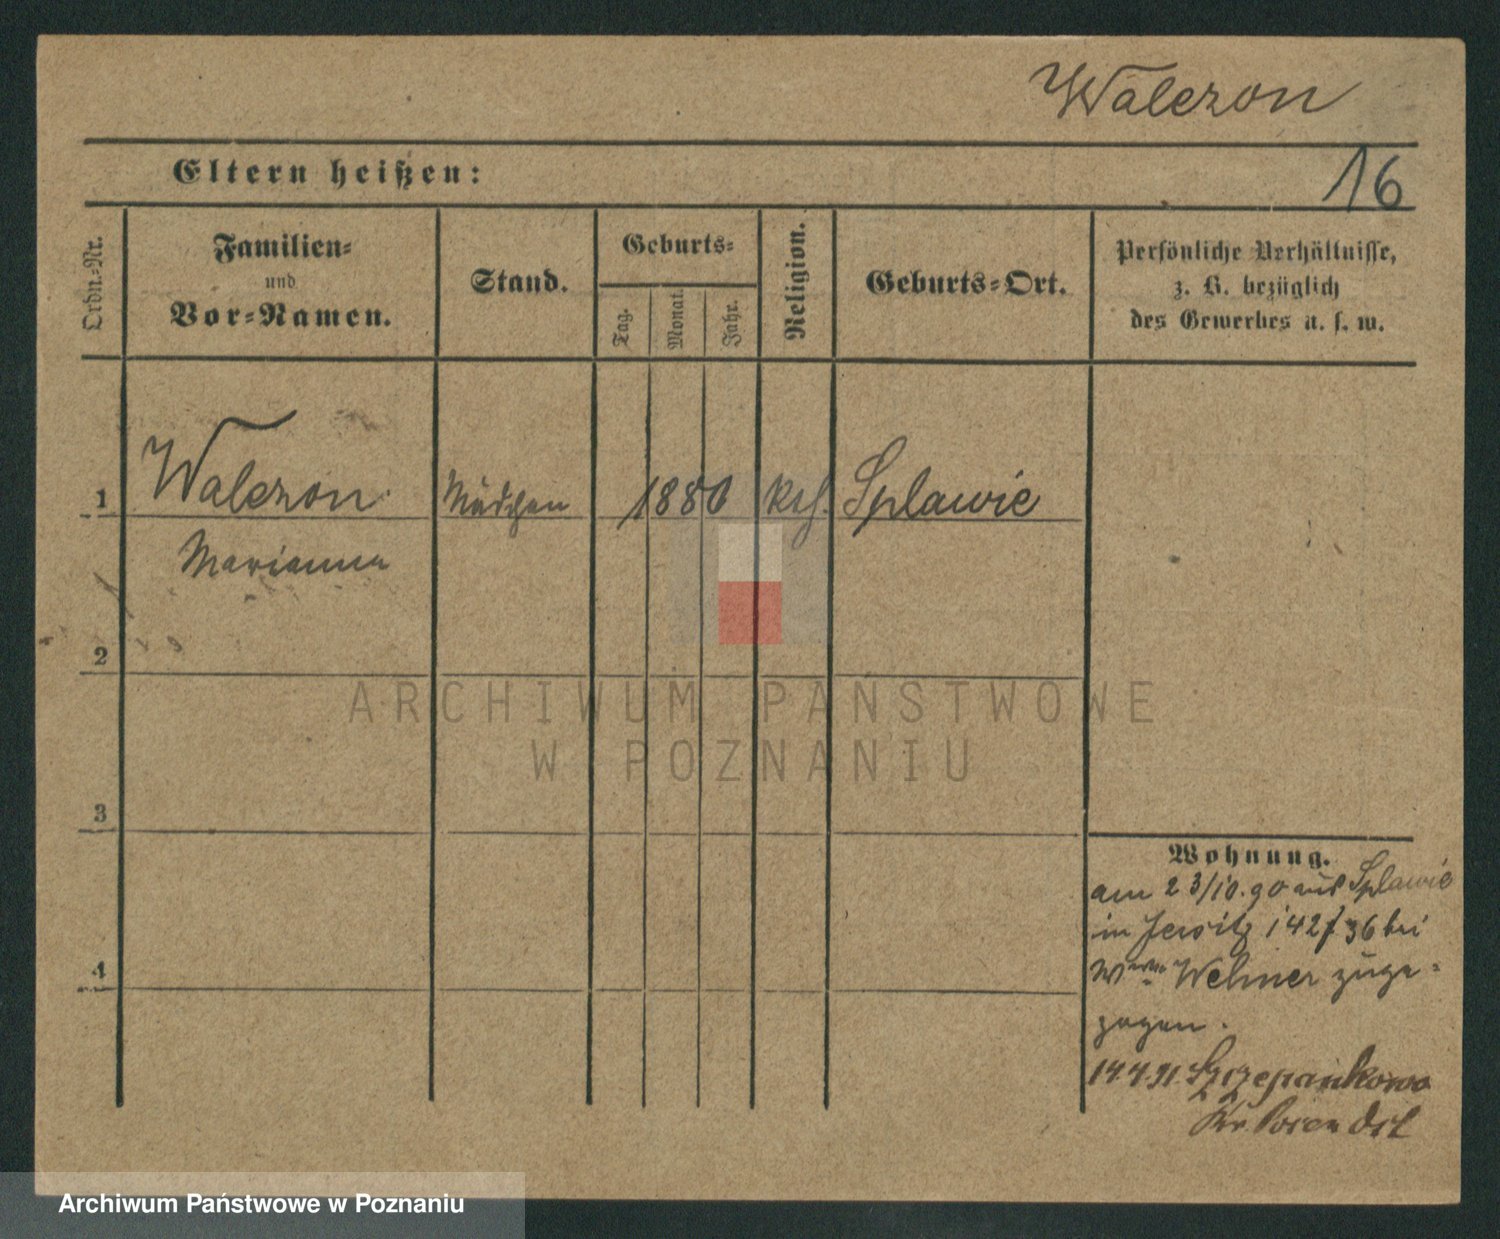 Walczon
Eltern heißen:
16
Ordn.-Nr.
Familien-
und
Vor-Namen.
Stand.
Geburts-
Tag.
Monat.
Jahr.
Religion.
Geburts-Ort.
Persönliche Verhältnisse,
z. B. bezüglich
des Gewerbes u. s. w.
1 Walczon Mädchen 1880 kth. Splawie
Marianna
2
3
4
Wohnung.
am 23/10.90 aus Splawie
in Jersitz 142/36 bei
Welmer zuge-
zogen.
14.4.91. Szczepankowo
Kr. Posen Ost
ARCHIWUM PAŃSTWOWE
W POZNANIU
Archiwum Państwowe w Poznaniu